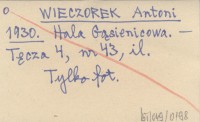 o WIECZOREK Antoni
1930. Hala Gąsienicowa. —
Tęcza 4, nr 43, il.
Tylko fot.